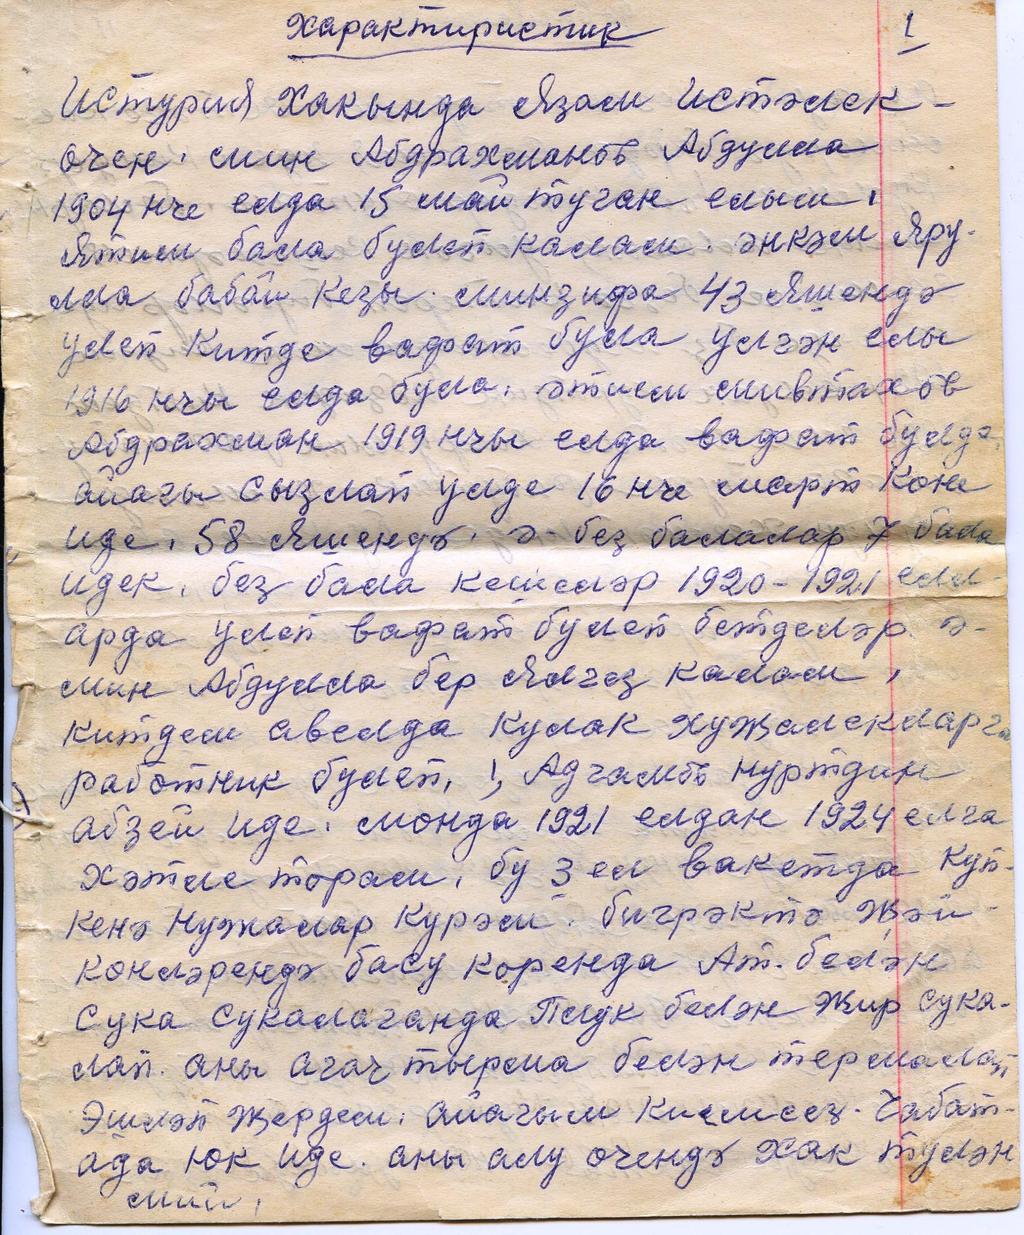 Характиристик
1
Истурия хакында язам истәлек -
өчен, мин Абдрахмановъ Абдулла
1904 нче елда 15 май туган елым,
ятим бала булеп калам. әнкәм Яру-
лла бабай кезы. минзифа 43 яшендә
улеп китде вафат була улгән елы
1916 нчы елда була, этием мивтаховъ
Абдрахман 1919 нчы елда вафат булдэ,
айагы сызлап улде 16 нче март коне
иде, 58 яшендә, ә- без балалар 7 бала
идек, без бала кешеләр 1920-1921 елл-
арда улеп вафат булеп бетделәр. ә-
мин Абдулла бер ялгез калам,
китдем авелда кулак хужалекларга
работник булеп, !, Адгамовъ нуртдин
абзей иде, монда 1921 елдан 1924 елга
хәтле торам, бу 3 ел вакетда куп-
кенә нужалар курәм. бигрәктә жәй-
конләрендә басу корендә Ат. беләң
сука сукалаганда Плук беләң жир сука-
лап. аны агач тырма беләң термалап,
эшләп жердем, айагым киемсез. чабат-
ада юк иде. аны алу өчендә хак түләң
мий,